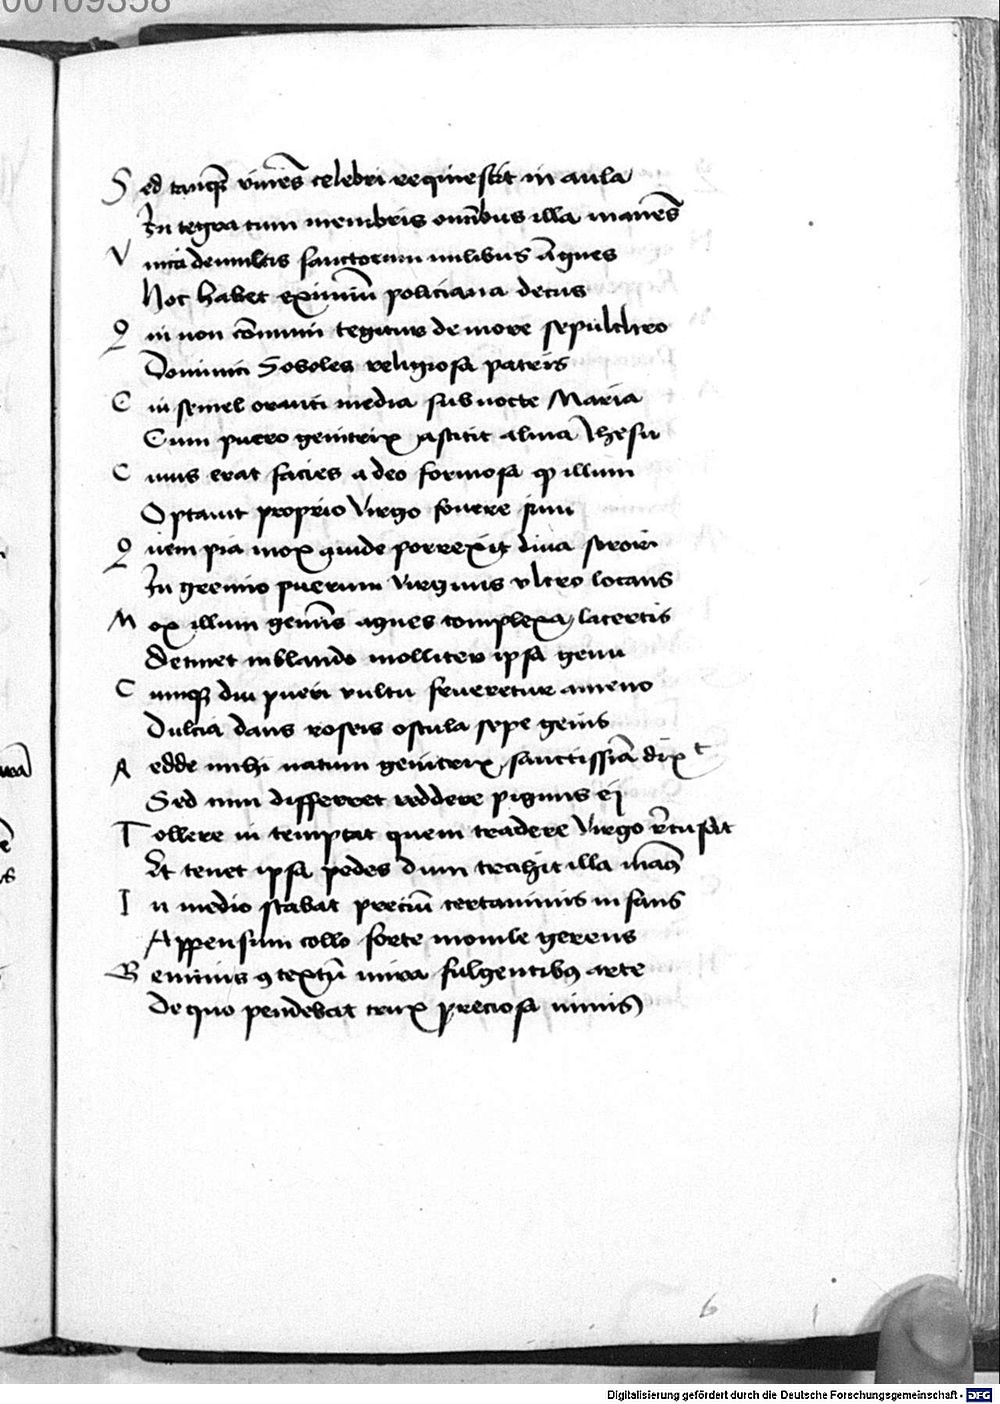 00109358
Sed tanq̃ viuẽs celebri requiescit in aula
In tegra cum membris omĩbus illa manẽs
Vnica de multis sanctorum milibus Agnes
Hoc habet eximiũ policiana decus
Qui non cõmuni tegitur de more sepulchro
Dominici Soboles religiosa patris
Cui semel oranti media sub nocte Maria
Cum puero genitrix astitit alma Ihesu
Cuius erat facies a deo formosa qͥ illum
Optauit proprio Virgo fouere sinu
Quem pia mox auide porrexit diua sorori
In gremio puerum Virginis vltro locans
Mox illum gemĩs agnes complexa lacertis
Detinet in blando molliter ipsa genu
Cumqꝫ diu pueri vultu frueretur ameno
Dulcia dans roseis oscula sepe genis
Redde mihi natum genitrix sanctissiã dixᵗ
Sed cum differret reddere pignus ei
Tollere in temptat quem tradere Virgo rẽcusat
Et tenet ipsa pedes dum trahit illa manꝰ
In medio stabat preciũ certaminis in fans
Appensum collo forte monile gerens
Gemmis ꝯtextũ mira fulgentibꝫ arte
De quo pendebat crux preciosa nimis
6 1
Digitalisierung gefördert durch die Deutsche Forschungsgemeinschaft - DFG